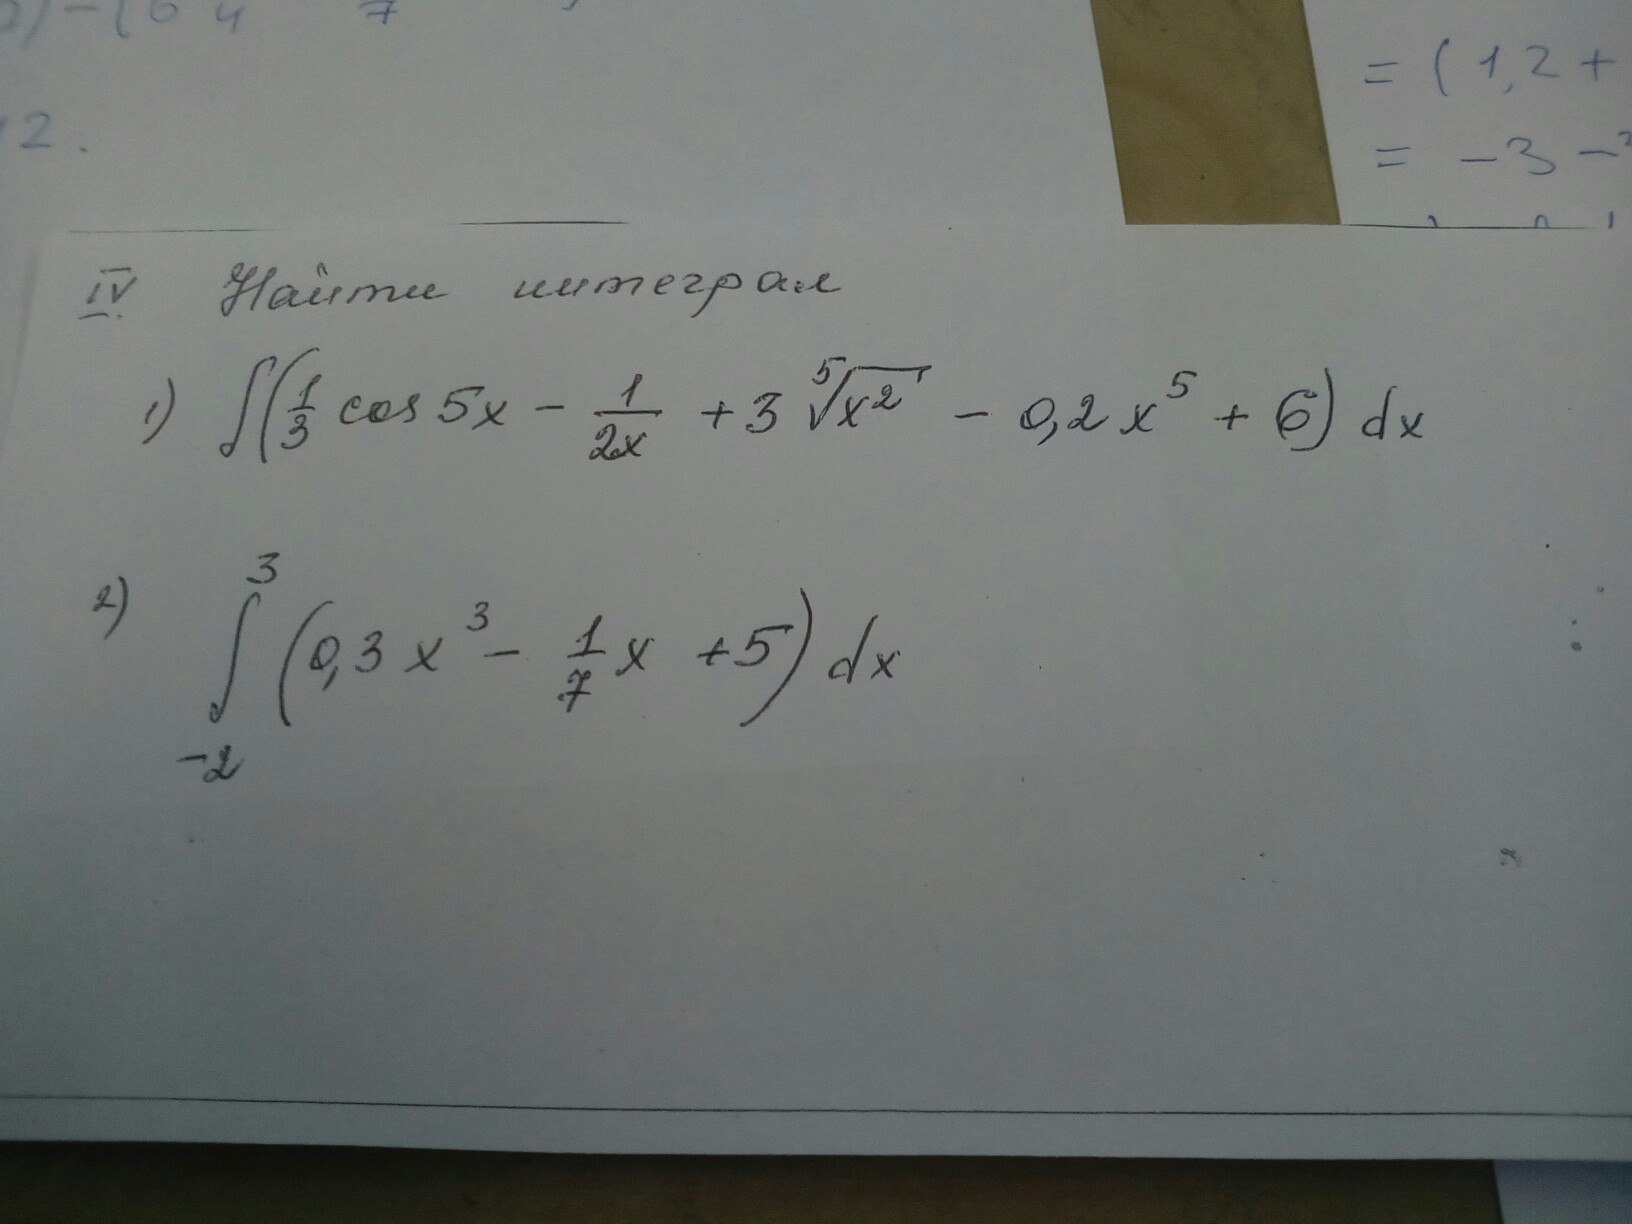 = (1,2 +
12.
= -3 -
IV. Найти интеграл
1) ∫(1/3 cos 5x - 1/2x + 3 ⁵√x² - 0,2x⁵ + 6) dx
2) ∫₋₂³ (0,3x³ - 1/7 x + 5) dx